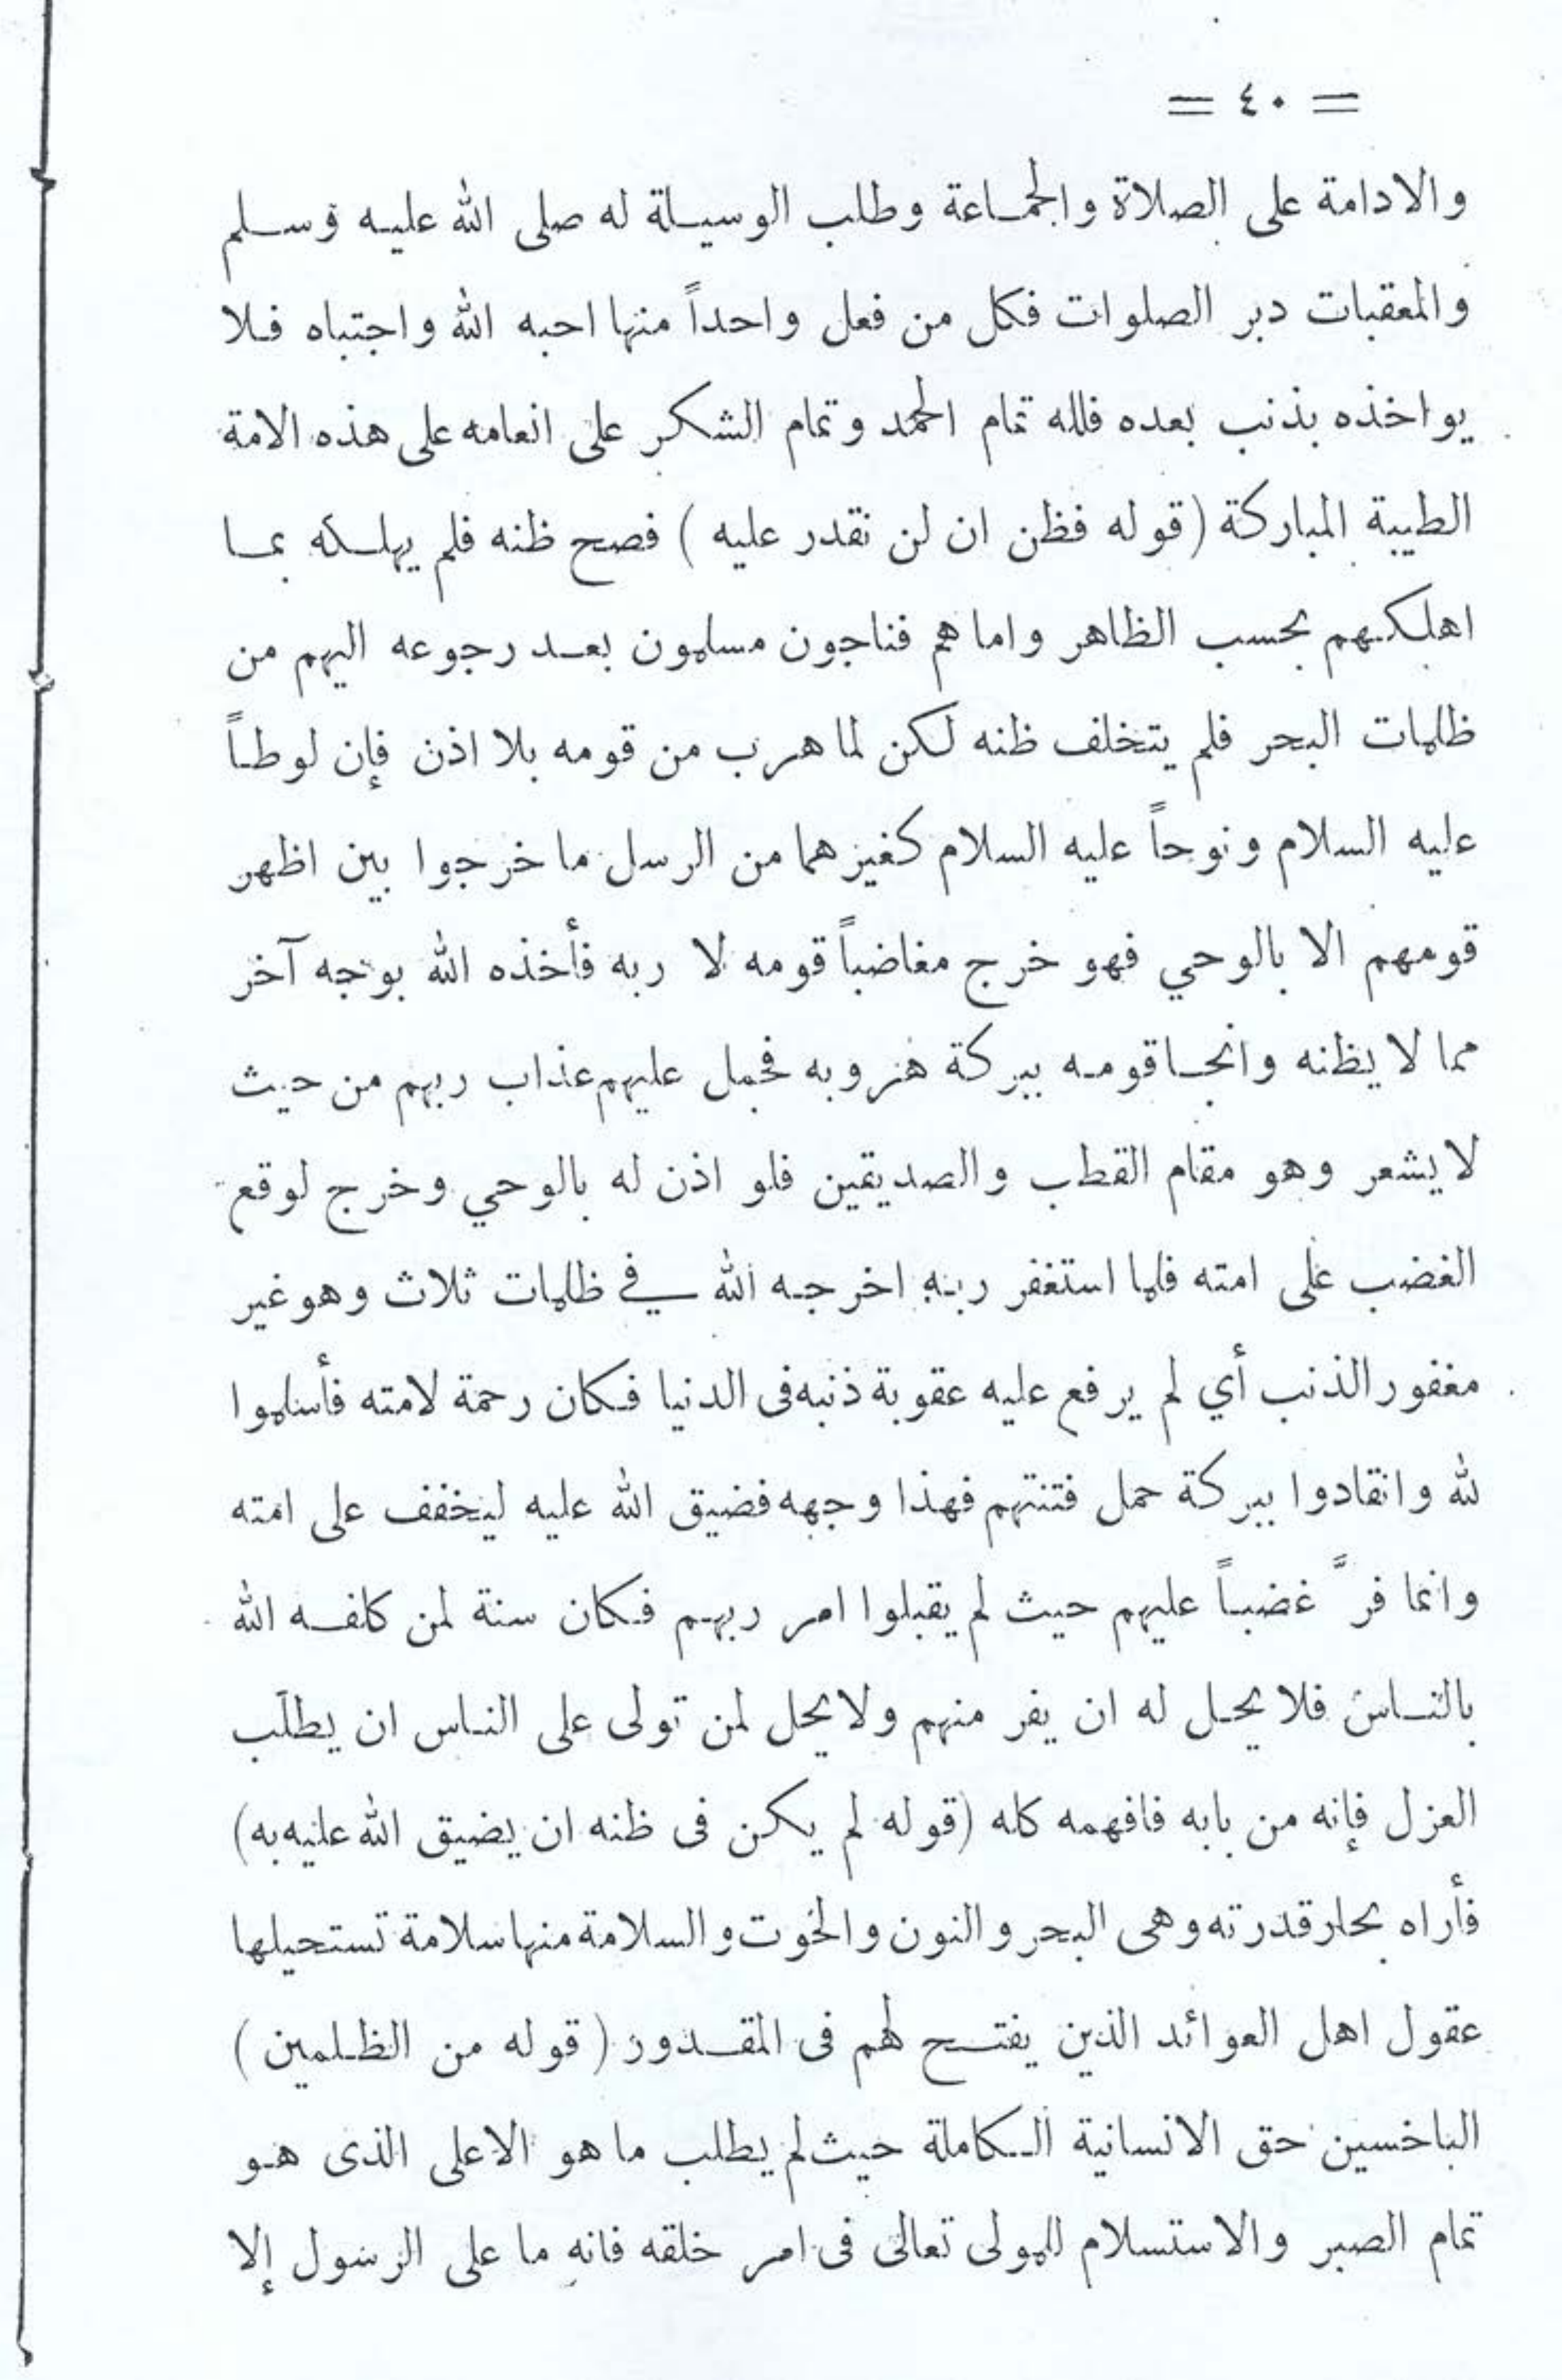 = ٤٠ =
والادامة على الصلاة والجماعة وطلب الوسيلة له صلى الله عليه وسلم
والمعقبات دبر الصلوات فكل من فعل واحداً منها احبه الله واجتباه فلا
يواخذه بذنب بعده فلله تمام الحمد وتمام الشكر على انعامه على هذه الامة
الطيبة المباركة (قوله فظن ان لن نقدر عليه) فصح ظنه فلم يهلكه بما
اهلكهم بحسب الظاهر واما هم فناجون مسلمون بعد رجوعه اليهم من
ظلمات البحر فلم يتخلف ظنه لكن لما هرب من قومه بلا اذن فإن لوطاً
عليه السلام ونوحاً عليه السلام كغيرهما من الرسل ما خرجوا بين اظهر
قومهم الا بالوحي فهو خرج مغاضباً قومه لا ربه فأخذه الله بوجه آخر
مما لا يظنه وانجا قومه ببركة هروبه فحمل عليهم عذاب ربهم من حيث
لا يشعر وهو مقام القطب والصديقين فلو اذن له بالوحي وخرج لوقع
الغضب على امته فلما استغفر ربه اخرجه الله في ظلمات ثلاث وهو غير
مغفور الذنب أي لم يرفع عليه عقوبة ذنبه فى الدنيا فكان رحمة لامته فأسلموا
لله وانقادوا ببركة حمل فتنتهم فهذا وجهه فضيق الله عليه ليخفف على امته
وانما فرَّ غضباً عليهم حيث لم يقبلوا امر ربهم فكان سنة لمن كلفه الله
بالناس فلا يحل له ان يفر منهم ولا يحل لمن تولى على الناس ان يطلب
العزل فإنه من بابه فافهمه كله (قوله لم يكن فى ظنه ان يضيق الله عليه به)
فأراه بحار قدرته وهى البحر والنون والحوت والسلامة منها سلامة تستحيلها
عقول اهل العوائد الذين يفتح لهم فى المقدور (قوله من الظلمين)
الباخسين حق الانسانية الكاملة حيث لم يطلب ما هو الاعلى الذى هو
تمام الصبر والاستسلام للمولى تعالى فى امر خلقه فانه ما على الرسول إلا